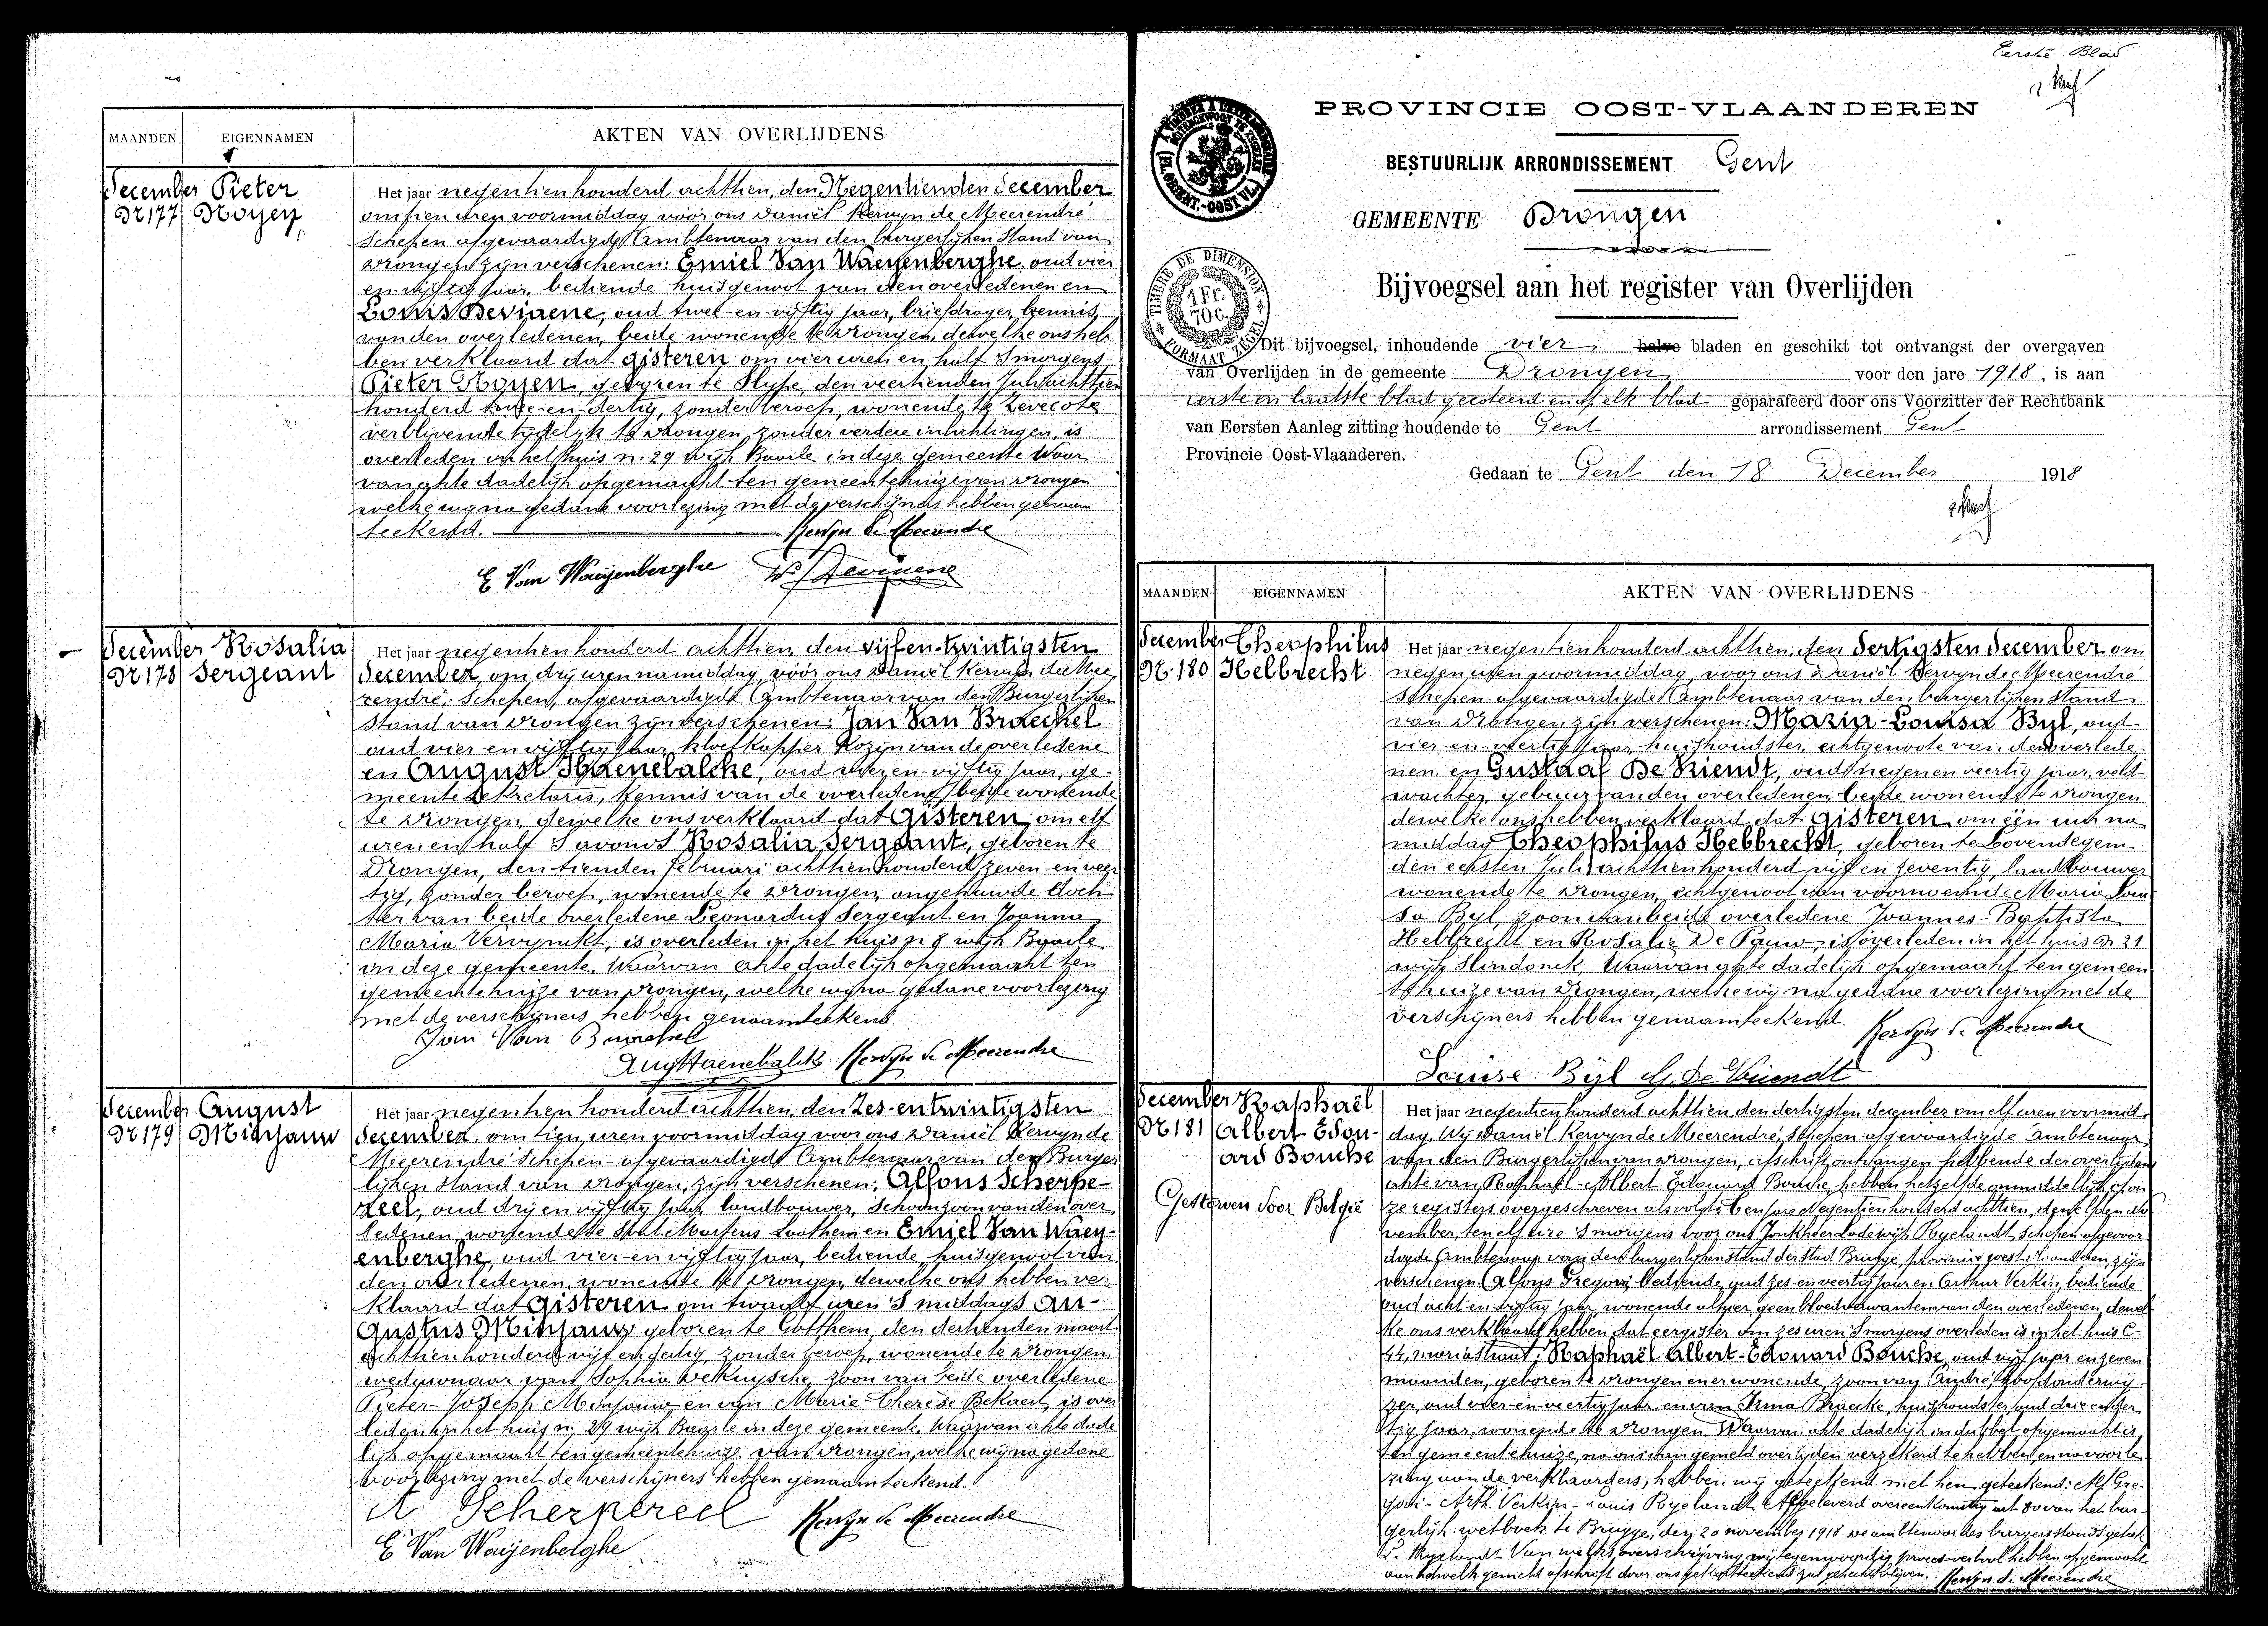 MAANDEN EIGENNAMEN AKTEN VAN OVERLIJDENS
December Pieter
Nr 177 Noyen
Het jaar negentienhonderd achttien, den Negentienden December
om tien uren voormiddag vóór ons Daniël Kervyn de Meerendré
Schepen afgevaardigde Ambtenaar van den burgerlijken Stand van
Drongen zijn verschenen: Emiel Van Waeyenberghe, oud vier
en vijftig jaar, bediende huisgenoot van den overledenen en
Louis Deviaene, oud twee-en-vijftig jaar, briefdrager, kennis
van den overledenen, beide wonende te Drongen, dewelke ons heb
ben verklaard dat gisteren om vier uren en half 's morgens
Pieter Noyen, geboren te Slype, den veertienden Juli achttien
honderd en-dertig, zonder beroep, wonende te Zevecote
verblijvende tijdelijk te Drongen, zonder verdere inlichtingen, is
overleden in het huis n. 29 wijk Baarle in deze gemeente Waar
van akte dadelijk opgemaakt ten gemeentehuize van Drongen
welke wij na gedane voorlezing met de verschijners hebben genaam
teekend. Kervyn de Meerendre
E Van Waeyenberghe Deviaene
December Rosalia
Nr 178 Sergeant
Het jaar negentienhonderd achttien den vijf-en-twintigsten
December, om drij uren namiddag, vóór ons Daniël Kervyn de Mee
rendré, Schepen, afgevaardigde Ambtenaar van den Burgerlijken
Stand van Drongen zijn verschenen: Jan Van Braeckel
oud vier en vijftig jaar, kloefkapper Kozijn van de overledene
en August Haenebalcke, oud en-vijftig jaar, ge-
meente sekretaris, kennis van de overledene, beide wonende
te Drongen, dewelke ons verklaard dat Gisteren om elf
uren en half 's avonds Rosalia Sergeant, geboren te
Drongen, den tienden Februari achttienhonderd zeven-en-veer
tig, zonder beroep, wonende te Drongen, ongehuwde doch
ter van beide overledene Leonardus Sergeant en Joanna
Maria Vervynckt, is overleden in het huis n 8 wijk Baarle
in deze gemeente. Waarvan akte dadelijk opgemaakt ten
gemeentehuize van Drongen, welke wij na gedane voorlezing
met de verschijners hebben genaamteekend
Jan Van Braeckel
Aug Haenebalcke Kervyn de Meerendre
December August
Nr 179 Minjauw
Het jaar negentien honderd achttien, den Zes-en-twintigsten
December om tien uren voormiddag voor ons Daniël Kervyn de
Meerendré Schepen-afgevaardigde Ambtenaar van den Burger
lijken stand van Drongen, zijn verschenen: Alfons Scherpe-
reel, oud drij en vijftig jaar landbouwer, Schoonzoon van den over
ledenen, wonende te Sint Martens Leethem en Emiel Van Waey-
enberghe, oud vier-en-vijftig jaar, bediende, huisgenoot van
den overledenen, wonende te Drongen, dewelke ons hebben ver
klaard dat Gisteren om twaalf uren 's middags Au-
gustus Minjauw geboren te Gotthem, den dertienden maart
achttienhonderd vijf en dertig, zonder beroep, wonende te Drongen
weduwnaar van Sophia DeKuysche, zoon van beide overledene
Pieter-Joseph Minjauw en van Marie-Therèse Bekaert, is over
leden in het huis n. 29 wijk Baarle in deze gemeente. Waarvan akte dade
lijk opgemaakt ten gemeentehuize van Drongen, welke wij na gedane
voorlezing met de verschijners hebben genaamteekend.
A Scherpereel Kervyn de Meerendre
E Van Waeyenberghe
Eerste Blad
PROVINCIE OOST-VLAANDEREN
BESTUURLIJK ARRONDISSEMENT Gent
GEMEENTE Drongen
Bijvoegsel aan het register van Overlijden
TIMBRE DE DIMENSION
1 Fr.
70 c.
FORMAAT ZEGEL
Dit bijvoegsel, inhoudende vier halve bladen en geschikt tot ontvangst der overgaven
van Overlijden in de gemeente Drongen voor den jare 1918, is aan
eerste en laatste blad geteekend en op elk blad geparafeerd door ons Voorzitter der Rechtbank
van Eersten Aanleg zitting houdende te Gent arrondissement Gent
Provincie Oost-Vlaanderen.
Gedaan te Gent den 18 December 1918
MAANDEN EIGENNAMEN AKTEN VAN OVERLIJDENS
December Theophilus
Nr 180 Helbrecht
Het jaar negentienhonderd achttien, den Dertigsten December om
negen uren voormiddag, voor ons Daniël Kervyn de Meerendré
Schepen-afgevaardigde Ambtenaar van den burgerlijken stand
van Drongen, zijn verschenen: Maria-Louisa Byl, oud
vier-en-veertig jaar, huishoudster, echtgenoote van den overlede-
nen en Gustaaf De Vriendt, oud negen en veertig jaar, veld
wachter, gebuur van den overledenen, beide wonende te Drongen
dewelke ons hebben verklaard dat gisteren om één uur na
middag Theophilus Hebbrecht, geboren te Lovendegem
den eersten Juli achttienhonderd vijf en zeventig, landbouwer
wonende te Drongen, echtgenoot van voornoemde Maria Loui
sa Byl, zoon van beide overledene Joannes-Baptista
Hebbrecht en Rosalie De Pauw, is overleden in het huis Nr 21
wijk Slindonck. Waarvan akte dadelijk opgemaakt ten gemeen
tehuize van Drongen, welke wij na gedane voorlezing met de
verschijners hebben genaamteekend. Kervyn de Meerendre
Louise Bijl G. De Vriendt
December Raphaël
Nr 181 Albert Edou-
ard Bouche
Gestorven voor België
Het jaar negentienhonderd achttien den dertigsten december om elf uren voormid
dag, Wij Daniël Kervyn de Meerendré, Schepen afgevaardigde Ambtenaar
van den Burgerlijken van Drongen, afschrift ontvangen hebbende der overlijdens
akte van Raphaël-Albert Edouard Bouche, hebben hetzelfde onmiddellijk op on
ze registers overgeschreven als volgt: Ten jare Negentienhonderd achttien, den no
vember, ten elf ure 's morgens voor ons Jonkheer Lodewijk Ryelandt, schepen afgevaar
digde Ambtenaar van den burgerlijken stand der stad Brugge, provincie west vlaanderen, zijn
verschenen Alfons Gregori, bediende, oud zes-en-veertig jaar en Arthur Verkin, bediende
oud acht en vijftig jaar, wonende alhier, geen bloedverwanten van den overledenen, dewel
ke ons verklaard hebben dat eergister om zes uren 's morgens overleden is in het huis C-
44, mariastraat: Raphaël Albert-Edouard Bouche, oud vijf jaar en zeven
maanden, geboren te Drongen en er wonende, zoon van André, hoofdonderwij
zer, oud vier-en-veertig jaar en van Irma Braecke, huishoudster, oud drie en der
tig jaar, wonende te Drongen. Waarvan akte dadelijk in dubbel opgemaakt is
ten gemeentehuize, na ons van gemeld overlijden verzekerd te hebben, en na voorle
zing aan de verklaarders, hebben wij geteekend met hen, geteekend: Alf Gre-
gori - Arth. Verkin - Louis Ryelandt Afgeleverd overeenkomstig art 80 van het bur
gerlijk wetboek te Brugge, den 20 november 1918 de ambtenaar des burgerstands geteek
L. Ryelandt Van welke overschrijving wij tegenwoordig proces-verbaal hebben opgemaakt
aan hetwelk gemeld afschrift door ons zal gehecht blijven. Kervyn de Meerendre